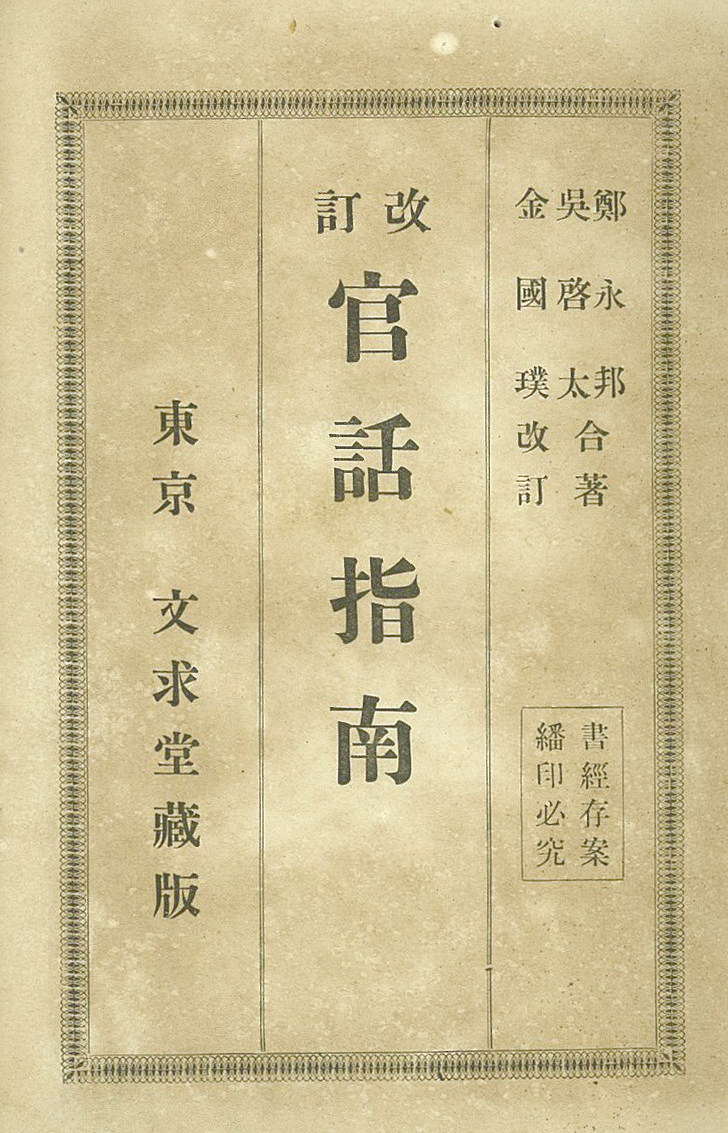 鄭永邦
吳啓太合著
金國璞改訂
書經存案
繙印必究
改訂
官話指南
東京 文求堂藏版